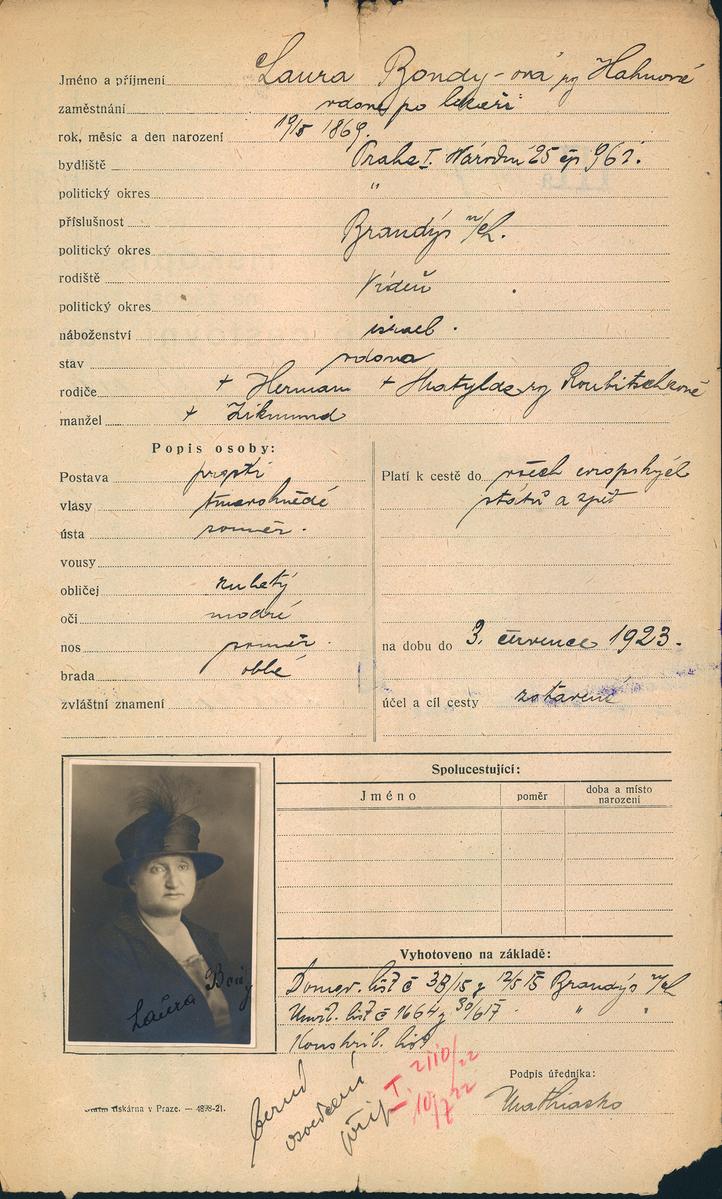 Jméno a příjmení Laura Bondy-ová rz Hahnové
zaměstnání vdova po lékaři
rok, měsíc a den narození 19/5 1869.
bydliště Praha I. Národní 25 čp 961.
politický okres "
příslušnost Brandýs n/L.
politický okres
rodiště Vídeň
politický okres
náboženství israel.
stav vdova
rodiče + Herman + Matylda rz Roubitschkové
manžel + Zikmund
Popis osoby:
Postava prostř
vlasy tmavohnědé
ústa souměr.
vousy
obličej kulatý
oči modré
nos souměr.
brada oblé
zvláštní znamení
Platí k cestě do všech evropských
států a zpět
na dobu do 3. července 1923.
účel a cíl cesty zotavení
Spolucestující:
Jméno poměr doba a místo narození
Vyhotoveno na základě:
Domov. list č 38/15 z 12/5 15 Brandýs n/L
Úmrt. list č 1664 z 30/6 17 " "
Konskrib. list
Laura Bondy
osvědčení
přip
I. 2110/22
10/7 22
Podpis úředníka:
Státní tiskárna v Praze. — 4898-21.